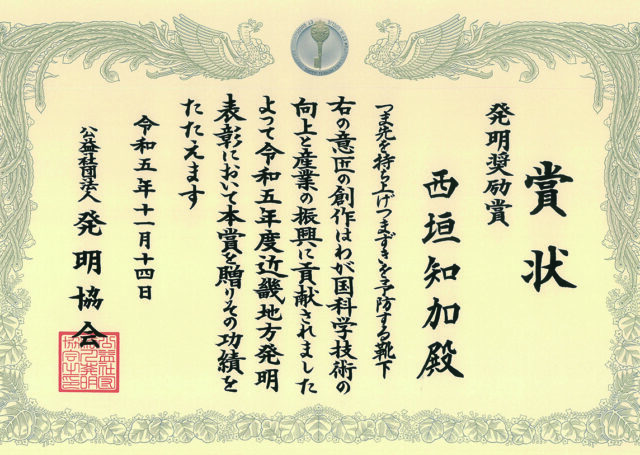 賞状
発明奨励賞
西垣知加殿
つま先を持ち上げつまずきを予防する靴下
右の意匠の創作はわが国科学技術の
向上と産業の振興に貢献されました
よって令和五年度近畿地方発明
表彰において本賞を贈りその功績を
たたえます
令和五年十一月十四日
公益社団法人 発明協会